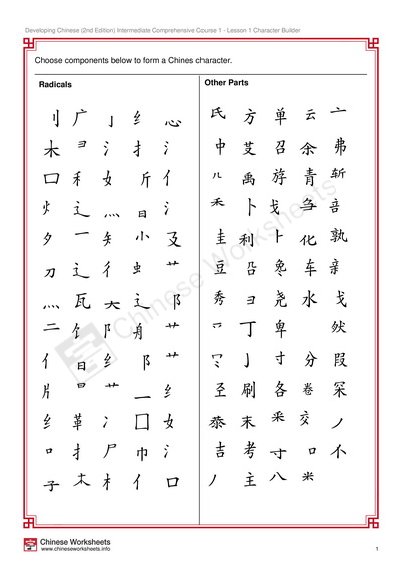 Developing Chinese (2nd Edition) Intermediate Comprehensive Course 1 - Lesson 1 Character Builder
Choose components below to form a Chines character.
Radicals
刂 广 亅 纟 心
木 彐 氵 扌 氵
囗 禾 女 斤 亻
火 辶 灬 日 氵
夕 一 矢 小 廴
刀 辶 彳 虫 艹
灬 瓦 大 辶 阝
二 饣 阝 舟 艹
亻 日 纟 阝 艹
片 日 艹 一 纟
纟 革 氵 囗 女
口 扌 尸 巾 氵
子 木 木 亻 口
Other Parts
氏 方 单 云 亠
中 芟 召 余 弗
儿 禹 斿 青 斩
禾 卜 戈 刍 咅
圭 利 卜 化 孰
豆 㕣 免 车 亲
秀 彐 尧 水 戈
乛 丁 卑 然
亅 寸 分 叚
圣 刷 各 卷 罙
恭 末 采 交 丿
吉 考 寸 口 不
丿 主 八 米
Chinese Worksheets
Chinese Worksheets
www.chineseworksheets.info
1